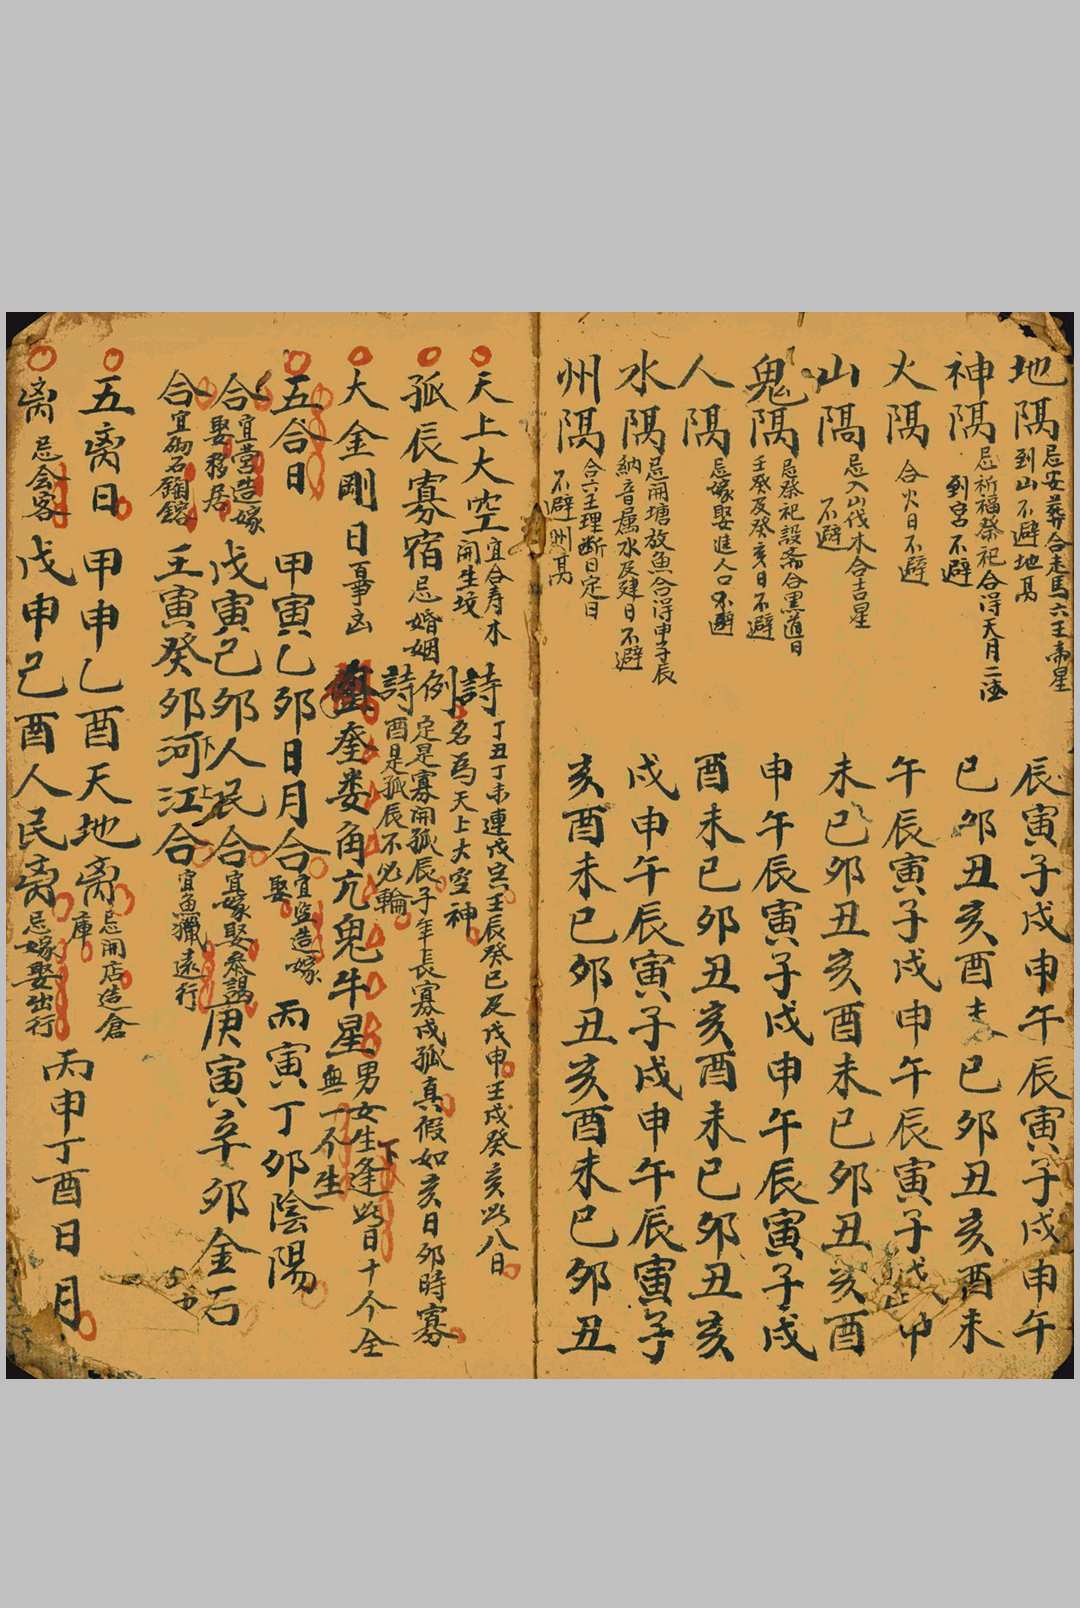 地隔 忌安葬合走馬六壬帝星到山不避地鬲 辰寅子戌申午辰寅子戌申午
神隔 忌祈福祭祀合得天月二德到宮不避 巳卯丑亥酉未巳卯丑亥酉未
火隔 合火日不避 午辰寅子戌申午辰寅子戌申
山隔 忌入山伐木合吉星不避 未巳卯丑亥酉未巳卯丑亥酉
鬼隔 忌祭祀設斋合黑道日壬癸及癸亥日不避 申午辰寅子戌申午辰寅子戌
人隔 忌嫁娶進人口不避 酉未巳卯丑亥酉未巳卯丑亥
水隔 忌開塘放魚合得申子辰納音属水及建日不避 戌申午辰寅子戌申午辰寅子
州隔 合六壬理断日定日不避州鬲 亥酉未巳卯丑亥酉未巳卯丑
天上大空 宜合寿木開生坟 詩 丁丑丁未連戊寅壬辰癸巳及戊申壬戌癸亥此八日名為天上大空神
孤辰寡宿 忌婚姻 詩例 定是寡開孤辰子年長寡戌孤真假如亥日卯時寡酉是孤辰不必輪
大金剛日 百事凶 奎娄角亢鬼牛星 男女生逢此日下十个全無一个生
五合日 甲寅乙卯日月合 宜营造嫁娶 丙寅丁卯陰陽
合 宜营造嫁娶移居 戊寅己卯人民合 宜嫁娶参謁 庚寅辛卯金石
合 宜砌石鋪鎔 壬寅癸卯河江合 宜魚獵遠行
五离日 甲申乙酉天地离 忌開店造倉庫 丙申丁酉日月
离 忌会客 戊申己酉人民离 忌嫁娶出行